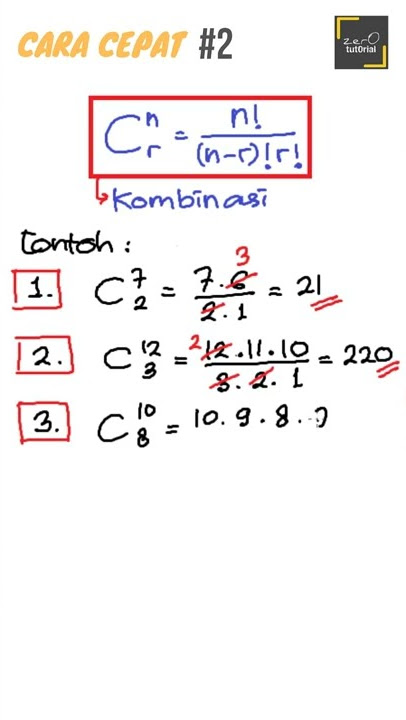 CARA CEPAT #2
zerO
tutOrial
C^n_r = n! / (n-r)! r!
Kombinasi
Contoh :
1. C^7_2 = 7 . 6 / 2 . 1 = 21
3
2. C^12_3 = 12 . 11 . 10 / 3 . 2 . 1 = 220
2
3. C^10_8 = 10 . 9 . 8 .